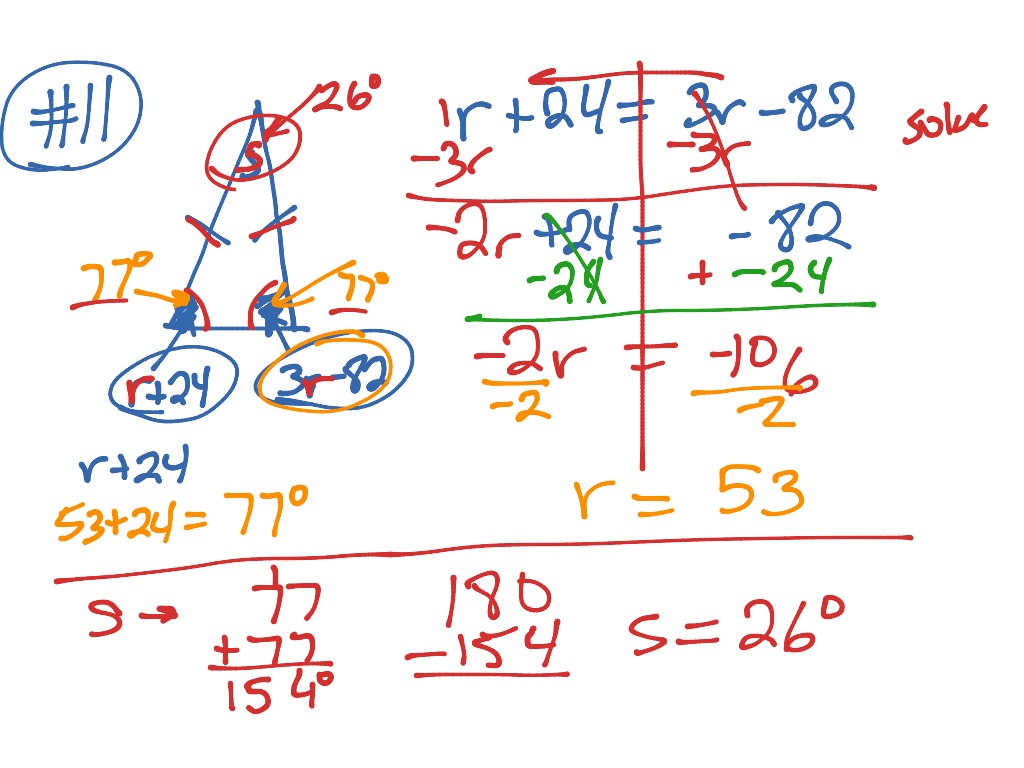 #11
26°
S
77°
77°
r+24
3r-82
1r+24=3r-82
solve
-3r -3r
-2r+24=-82
-24 + -24
-2r = -106
-2 -2
r = 53
r+24
53+24= 77°
S → 77
+77
154°
180
-154
S = 26°